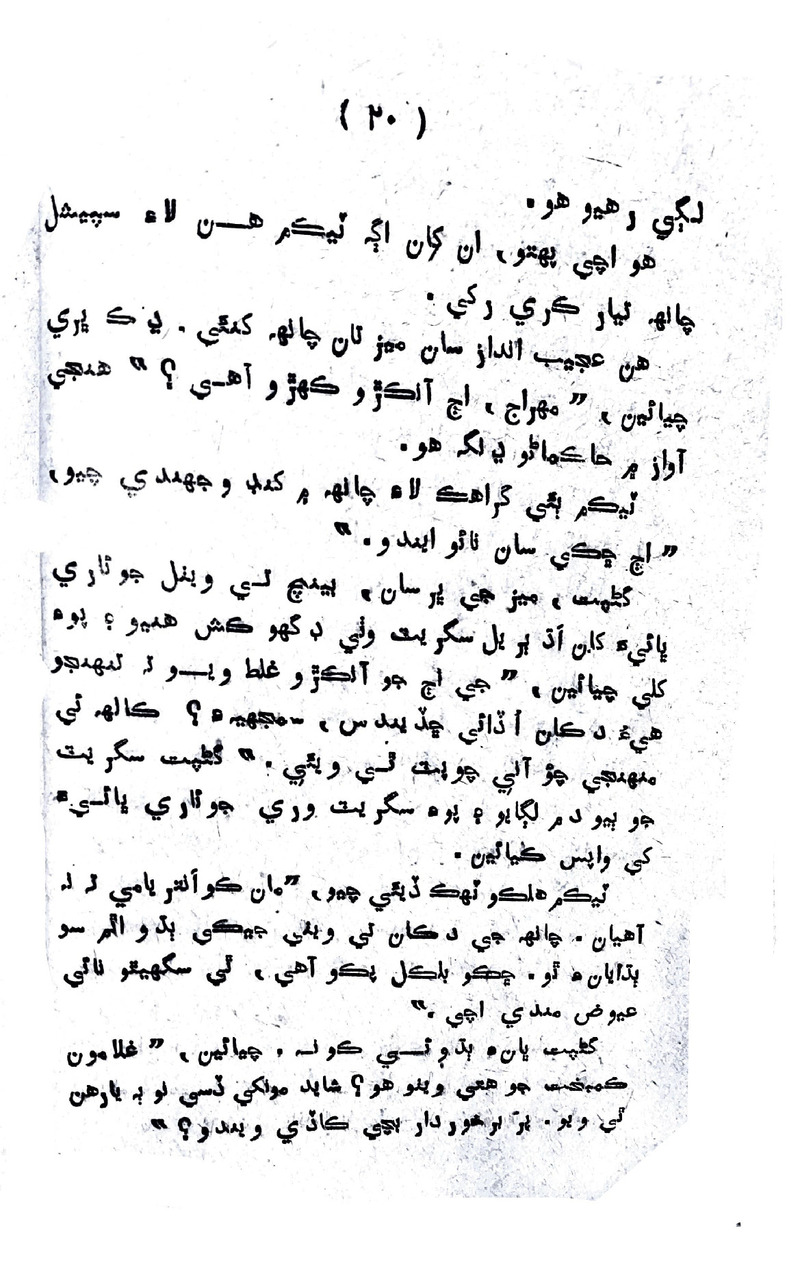 ( ۲۰ )
لڳي رهيو هو.
هو اچي پهتو، ان کان اڳه ٽيڪم هن لاءِ سپيشل
چانهه تيار ڪري رکي.
هن عجيب انداز سان ميز تان چانهه کنئي. ڍڪ ڀري
چيائين، ”مهراج، اڄ آنڪڙو ڪهڙو آهي؟“ هنجي
آواز ۾ حاڪماڻو ڍنگ هو.
ٽيڪم ٻئي گراهڪ لاءِ چانهه ۾ کنڊ وجهندي چيو،
”اڄ ڇڪي سان نائو ايندو.“
گڻپت، ميز جي ڀرسان، بينچ تي ويٺل جوئاري
ڀائيءَ کان اڌ ٻريل سگريٽ وٺي ڊگهو ڪش هنيو ۽ پوءِ
کلي چيائين، ”جي اڄ جو آنڪڙو غلط ويو ته تنهنجو
هيءُ دڪان اُڏائي ڇڏيندس، سمجهيءِ؟ ڪالهه ئي
منهنجي چؤ آني چوپٽ ٿي ويئي.“ گڻپت سگريٽ
جو ٻيو دم لڳايو ۽ پوءِ سگريٽ وري جوئاري ڀائيءَ
کي واپس ڪيائين.
ٽيڪم هلڪو ٽهڪ ڏيئي چيو، ”مان ڪو اَنتريامي ته نه
آهيان. چانهه جي دڪان تي ويٺي جيڪي ٻڌو اٿم سو
ٻڌايانءِ ٿو. ڇڪو بلڪل پڪو آهي، ٿي سگهيٿو نائي
عيوض مندي اچي.“
گڻپت پاڻ ٻڌو ئي ڪونه. چيائين، ”غلامون
ڪمبخت جو هتي ويٺو هو؟ شايد مونکي ڏسي نو ٻه يارهن
ٿي ويو. پر برخوردار بچي ڪاڏي ويندو؟“